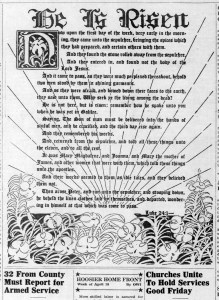 He Is Risen
Now upon the first day of the week, very early in the morn-
ing, they came unto the sepulcher, bringing the spices which
they had prepared, and certain others with them.
And they found the stone rolled away from the sepulcher,
And they entered in, and found not the body of the
Lord Jesus.
And it came to pass, as they were much perplexed thereabout, behold
two men stood by them in shining garments:
And as they were afraid, and bowed down their faces to the earth, they
said unto them, Why seek ye the living among the dead?
He is not here, but is risen: remember how he spake unto you
when he was yet in Galilee,
Saying, The Son of man must be delivered into the hands of
sinful men, and be crucified, and the third day rise again.
And they remembered his words,
And returned from the sepulcher, and told all these things unto
the eleven, and to all the rest.
It was Mary Magdalene, and Joanna, and Mary the mother of
James, and other women
And their words seemed to them as idle tales, and they believed
them not.
Then arose Peter, and ran unto the sepulcher; and stooping down,
he beheld the linen clothes laid by themselves, and departed, wonder-
ing in himself at that which was come to pass.
Luke 24:1-
32 From County
Must Report for
Armed Service
HOOSIER HOME FRONT
Week of April
Churches Unite
To Hold Services
Good Friday